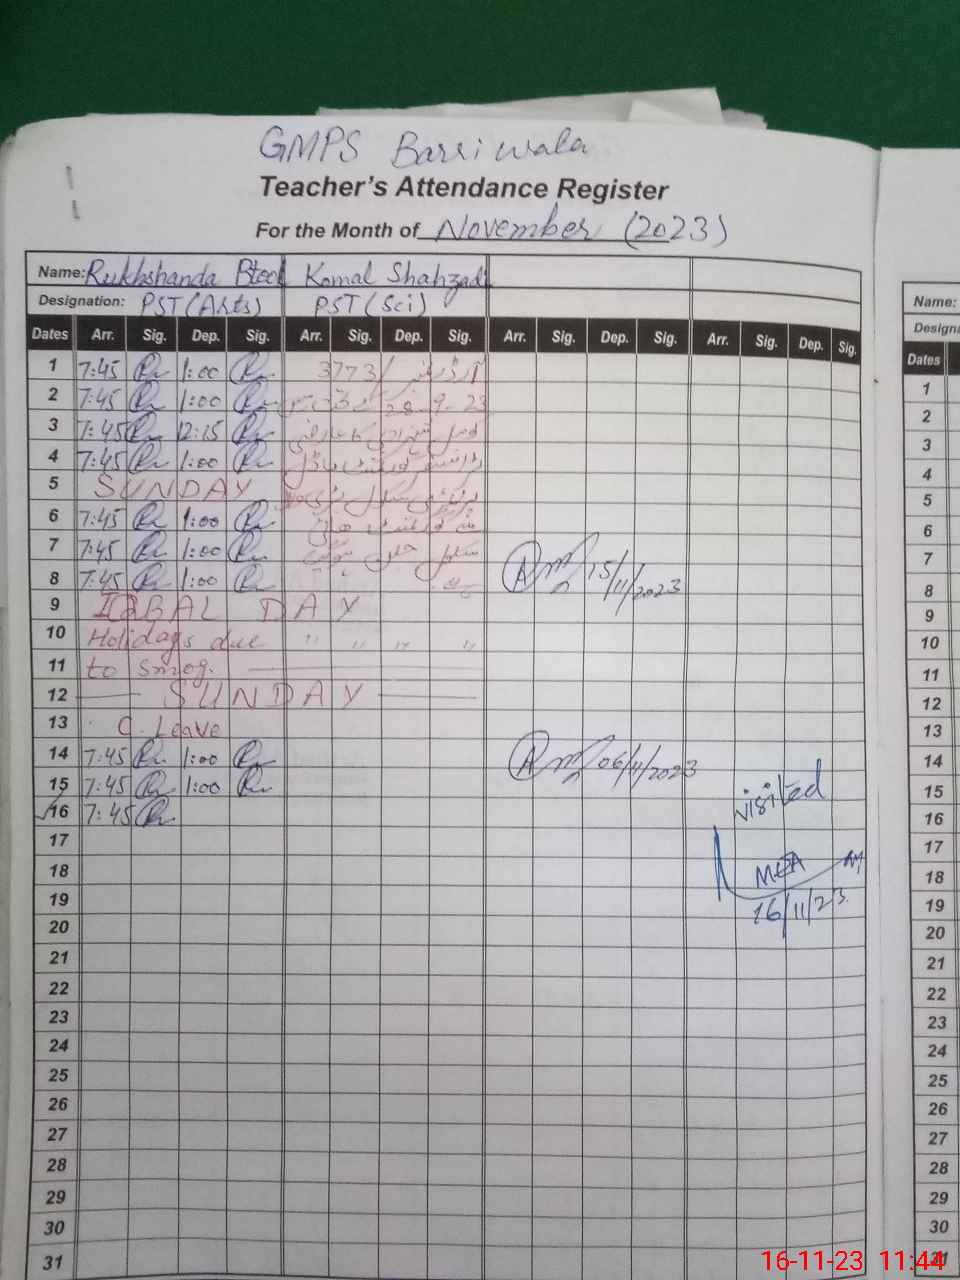 GMPS Barriwala
Teacher's Attendance Register
For the Month of November (2023)
Name: Rukhshanda Btool Komal Shahzadi
Designation: PST (Arts) PST (Sci)
Dates Arr. Sig. Dep. Sig. Arr. Sig. Dep. Sig. Arr. Sig. Dep. Sig. Arr. Sig. Dep. Sig.
1 7:45 1:00 آرڈر نمبر 3773/
2 7:45 1:00 28-9-23
3 7:45 12:15 کومل شہزادی کا عارضی
4 7:45 1:00 ٹرانسفر گورنمنٹ ماڈل
5 SUNDAY پرائمری سکول
6 7:45 1:00 گورنمنٹ ہائی
7 7:45 1:00 سکول
8 7:45 1:00 15/11/2023
9 IQBAL DAY
10 Holidays due " " " "
11 to smog.
12 SUNDAY
13 C. Leave
14 7:45 1:00 06/11/2023
15 7:45 1:00 visited
16 7:45
17
18 MEA
19 16/11/23
20
21
22
23
24
25
26
27
28
29
30
31
Name:
Designa
Dates
1
2
3
4
5
6
7
8
9
10
11
12
13
14
15
16
17
18
19
20
21
22
23
24
25
26
27
28
29
30
31
16-11-23 11:44